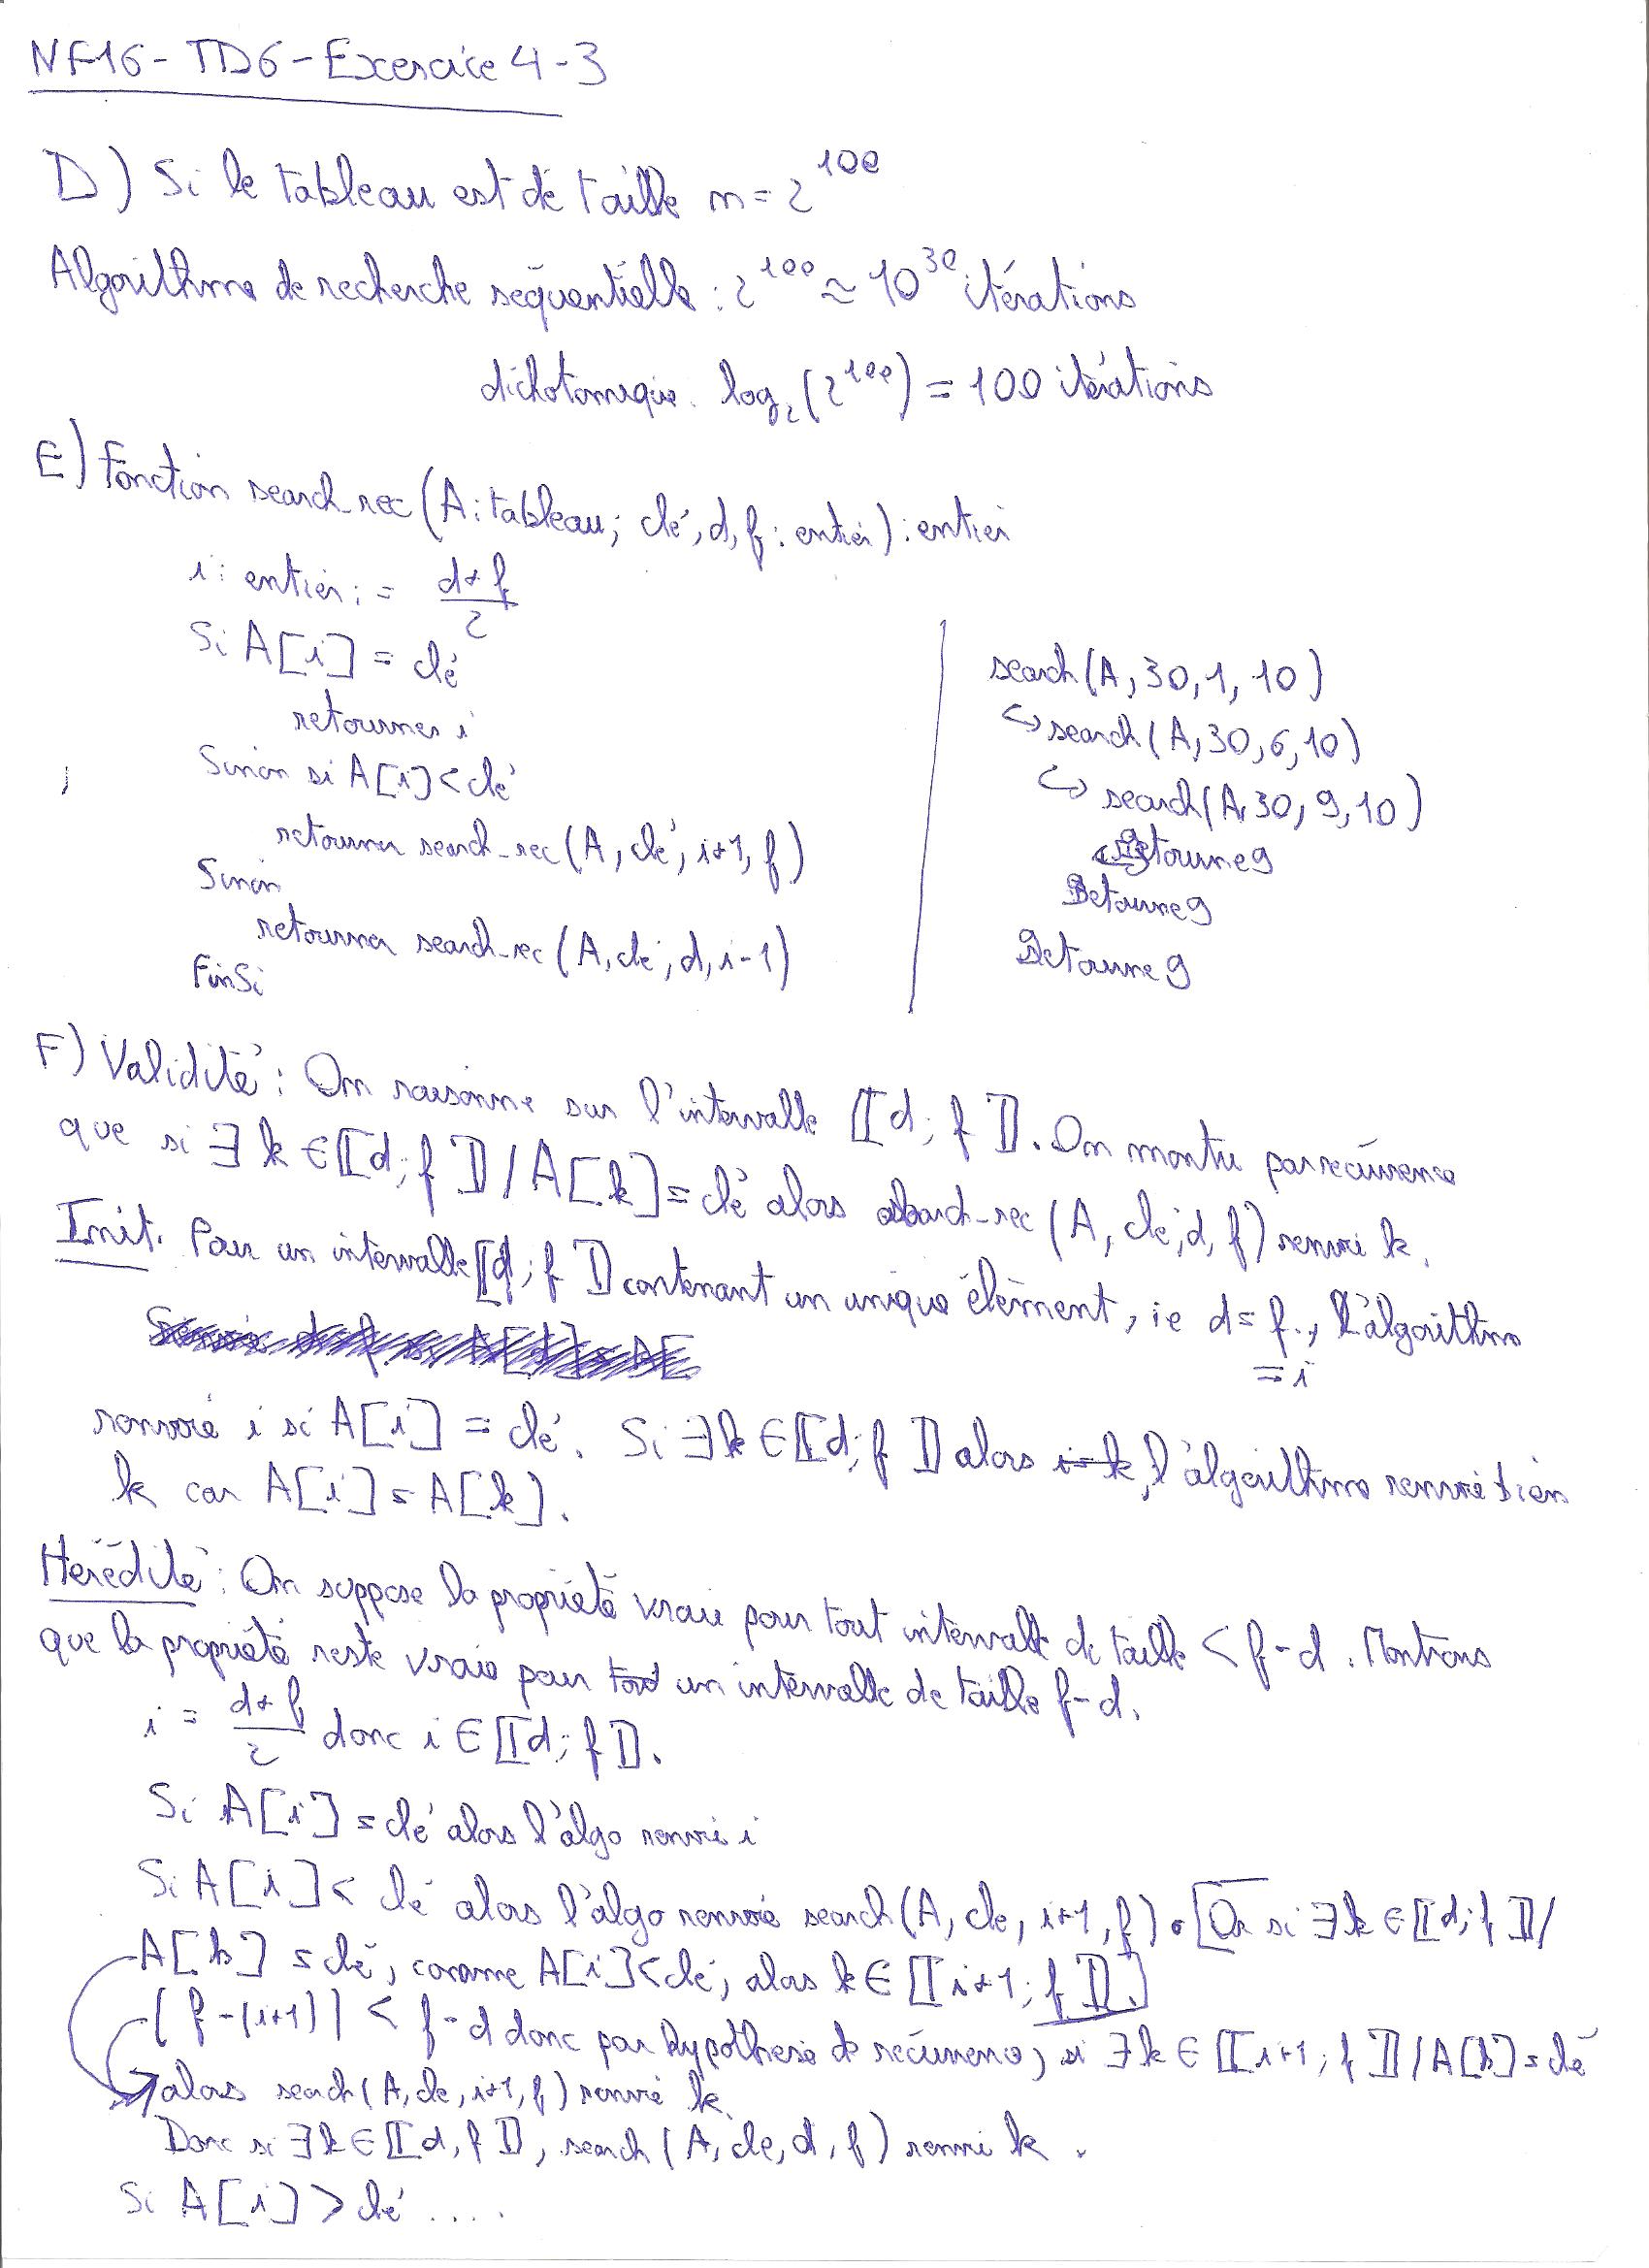 NF16 - TD6 - Exercice 4 - 3
D) Si le tableau est de taille n = 2^100
Algorithme de recherche séquentielle : 2^100 ≈ 10^30 itérations
dichotomique. log₂(2^100) = 100 itérations
E) Fonction search_rec (A : tableau ; clé, d, f : entier) : entier
i : entier := (d+f)/2
Si A[i] = clé
retourner i
Sinon si A[i] < clé
retourner search_rec (A, clé, i+1, f)
Sinon
retourner search_rec (A, clé, d, i-1)
FinSi
search(A, 30, 1, 10)
↪ search(A, 30, 6, 10)
↪ search(A, 30, 9, 10)
Retourne 9
Retourne 9
Retourne 9
F) Validité : On raisonne sur l'intervalle ⟦d ; f⟧. On montre par récurrence
que si ∃ k ∈ ⟦d ; f⟧ / A[k] = clé alors search_rec (A, clé, d, f) renvoi k.
Init. Pour un intervalle ⟦d ; f⟧ contenant un unique élément, ie d = f, l'algorithme
= i
renvoie i si A[i] = clé. Si ∃ k ∈ ⟦d ; f⟧ alors i=k, l'algorithme renvoie bien
k car A[i] = A[k].
Hérédité : On suppose la propriété vraie pour tout intervalle de taille < f-d. Montrons
que la propriété reste vraie pour tout un intervalle de taille f-d.
i = (d+f)/2 donc i ∈ ⟦d ; f⟧.
Si A[i] = clé alors l'algo renvoi i
Si A[i] < clé alors l'algo renvoie search(A, cle, i+1, f). [Or si ∃ k ∈ ⟦d ; f⟧ /
A[k] = clé, comme A[i] < clé, alors k ∈ ⟦i+1 ; f⟧.]
(f-(i+1)) < f-d donc par hypothèse de récurrence, si ∃ k ∈ ⟦i+1 ; f⟧ / A[k] = clé
alors search(A, cle, i+1, f) renvoie k.
Donc si ∃ k ∈ ⟦d, f⟧, search (A, cle, d, f) renvoi k.
Si A[i] > clé ....